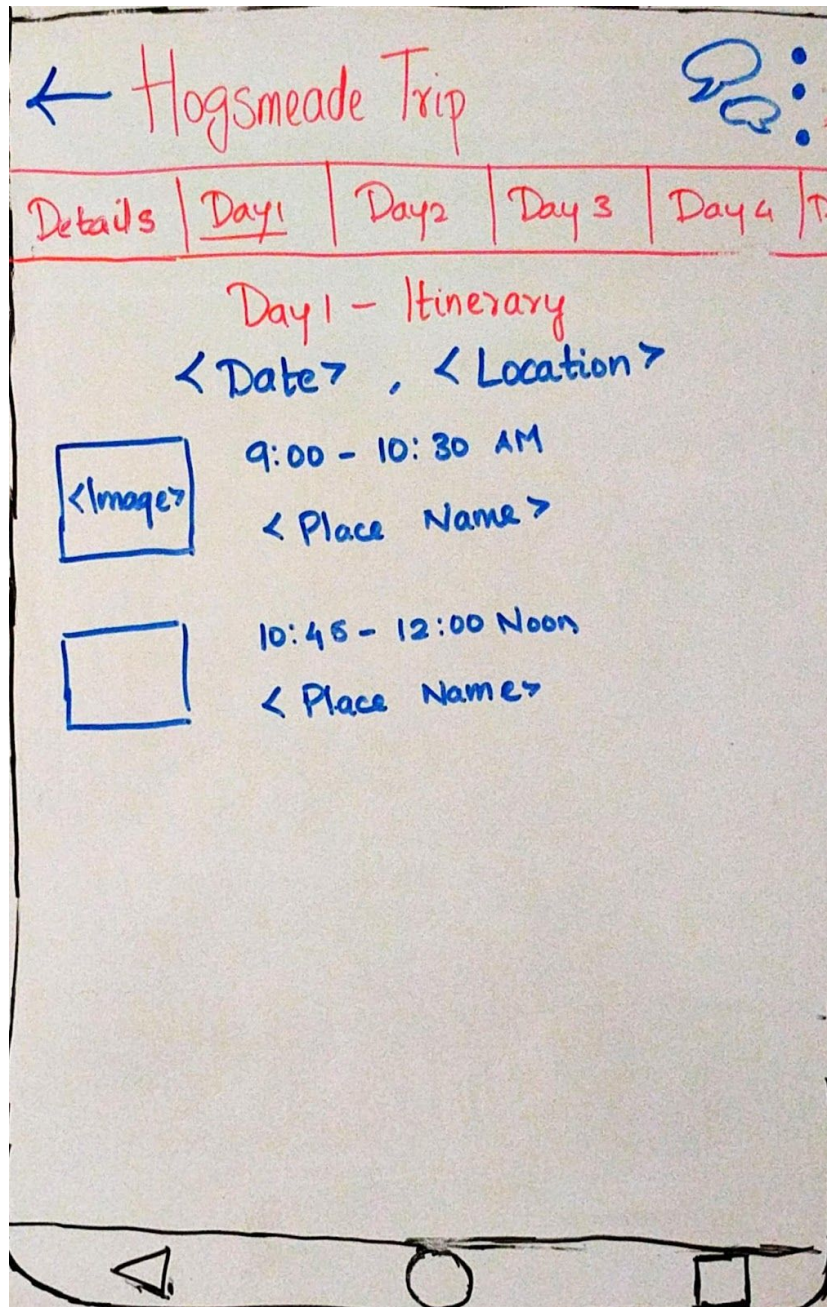 Hogsmeade Trip
Details Day1 Day2 Day 3 Day 4
Day 1 - Itinerary
<Date> , <Location>
9:00 - 10:30 AM
<Image>
<Place Name>
10:45 - 12:00 Noon
<Place Name>